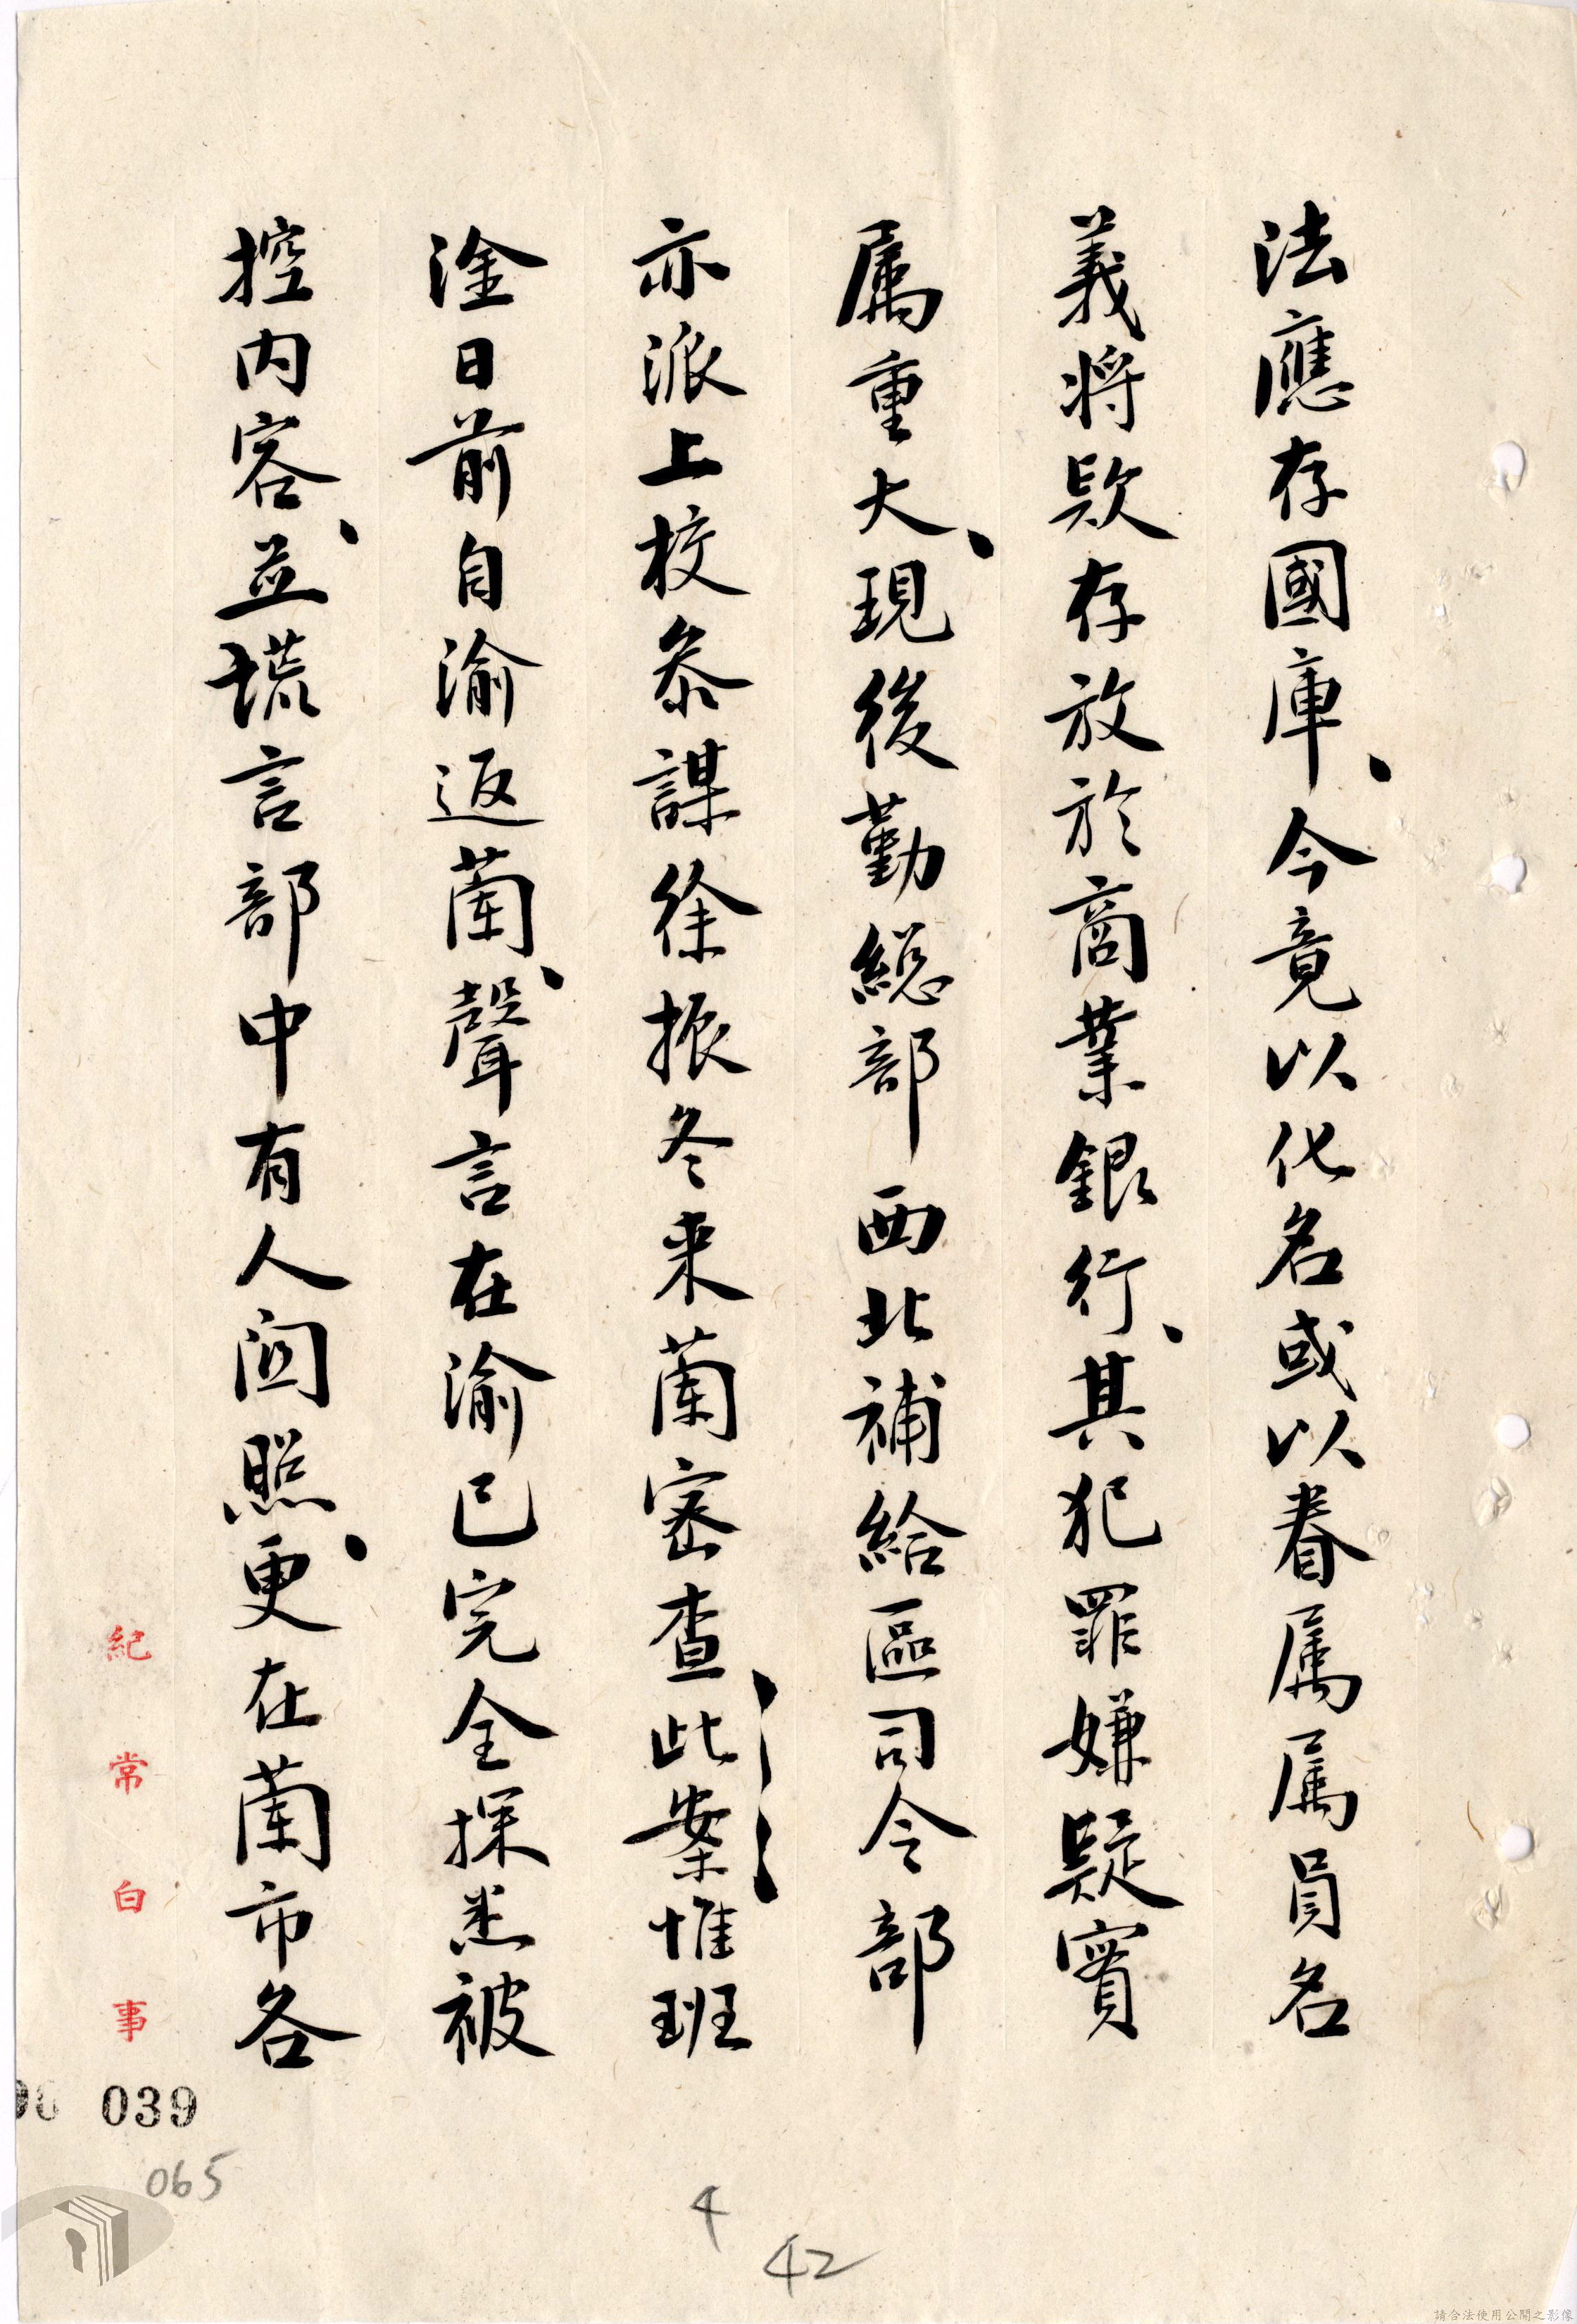 法應存國庫、今竟以化名或以眷属属員名
義將欵存放於商業銀行、其犯罪嫌疑實
属重大、現後勤総部西北補給區司令部
亦派上校叅謀徐振冬来蘭密查此案惟班
淦日前自渝返蘭、聲言在渝已完全探悉被
控内容、並謊言部中有人関照、更在蘭市各
紀常白事
039
065
4
42
請合法使用公開之影像